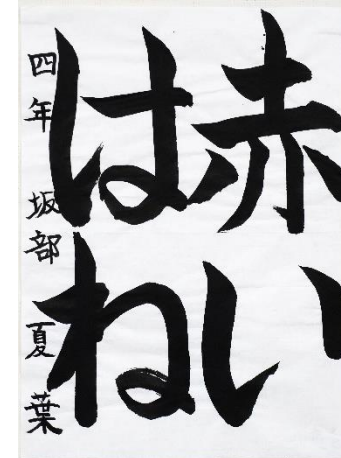 赤い
はね
四年 坂部 夏葉